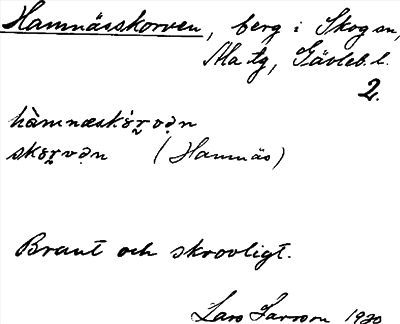 Hamnässkorven, berg i Skog sn,
Ma tg, Gävleb. l.
2.
hàmnæskòrvən
skòrvən (Hamnäs)
Brant och skrovligt.
Lars Larsson 1920